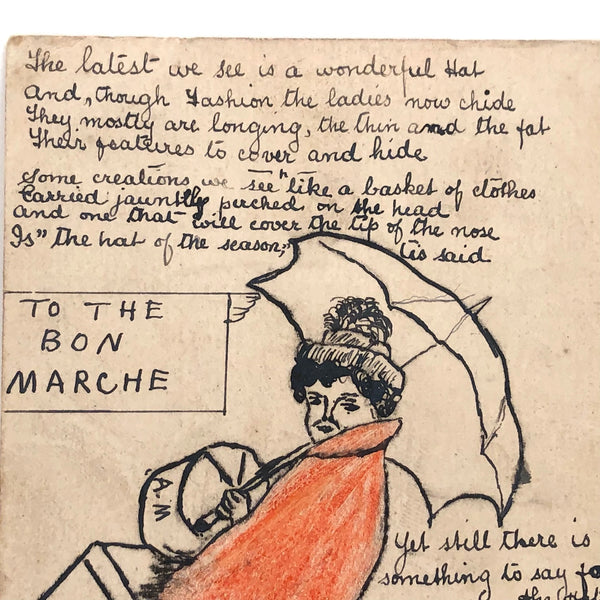 The latest we see is a wonderful Hat
And, though Fashion the ladies now chide
They mostly are longing, the thin and the fat
Their features to cover and hide
Some creations we see "like a basket of clothes
Carried jauntily perched on the head
and one that will cover the tip of the nose
Is" the hat of the season," tis said
TO THE
BON
MARCHE
A.M
Yet still there is
something to say
the